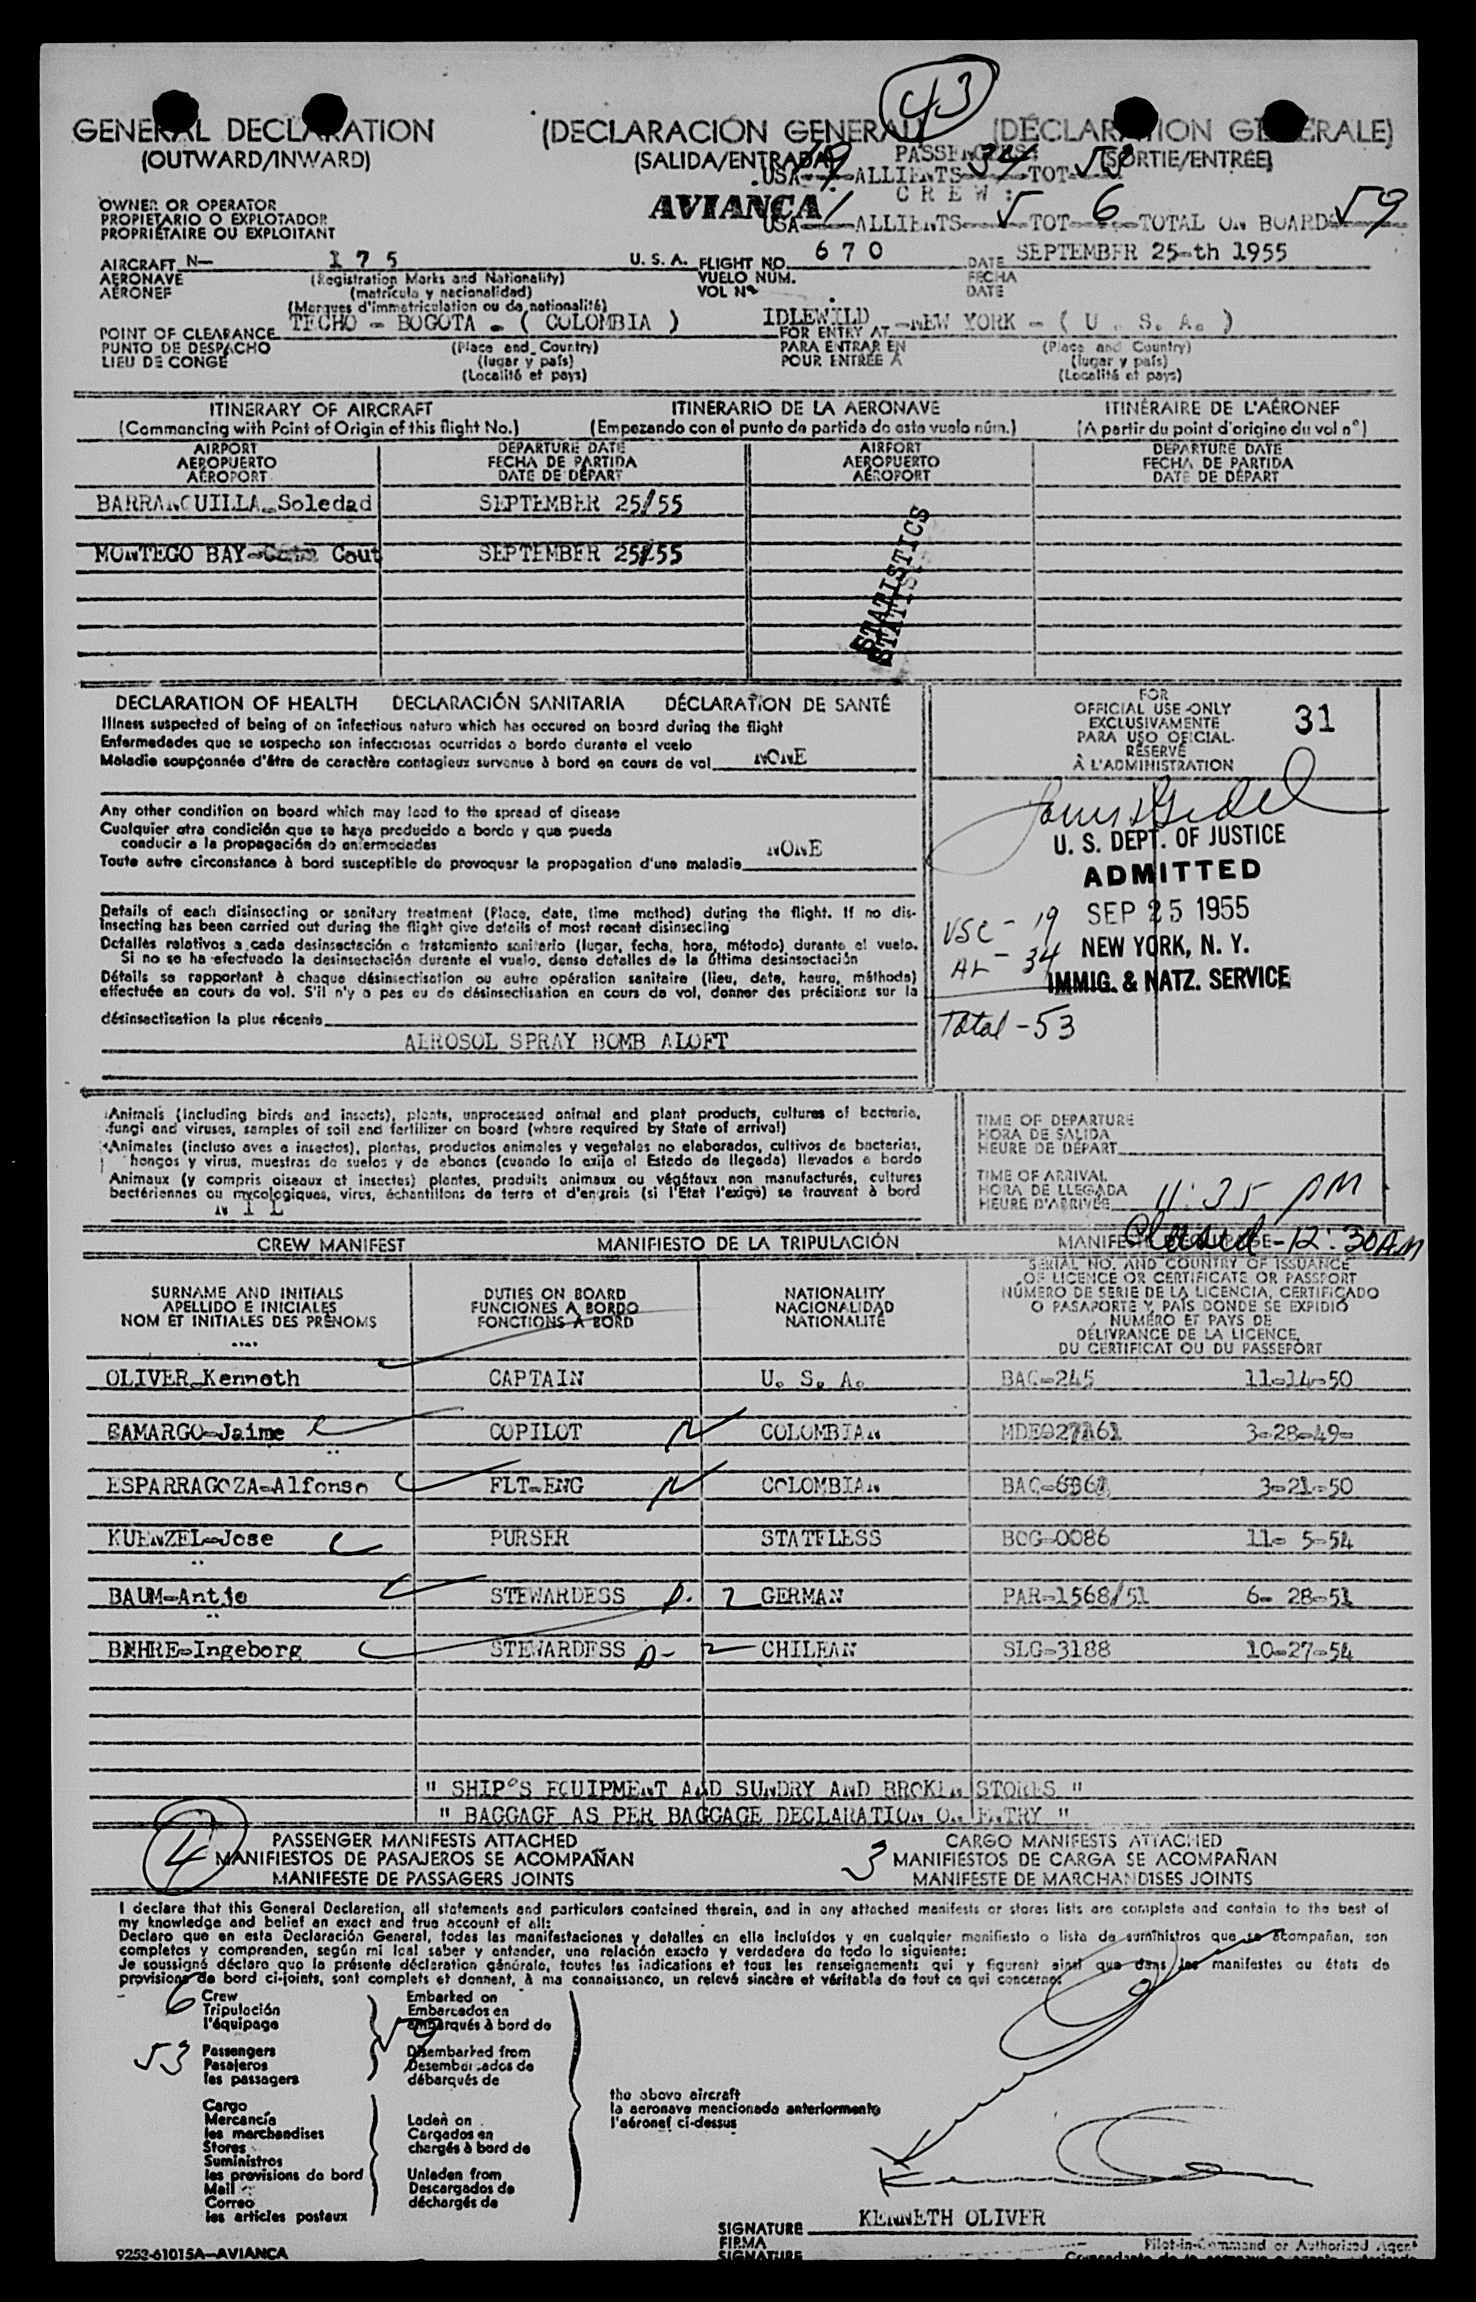 43
GENERAL DECLARATION (DECLARACIÓN GENERAL) (DÉCLARATION GENERALE)
(OUTWARD/INWARD) (SALIDA/ENTRADA) PASSENGERS: (SORTIE/ENTRÉE)
USA 19 ALLIENTS 34 TOT 53
OWNER OR OPERATOR AVIANCA C R E W :
PROPIETARIO O EXPLOTADOR
PROPRIÉTAIRE OU EXPLOITANT USA 1 ALLIENTS 5 TOT 6 TOTAL ON BOARD 59
AIRCRAFT N— 1 7 5 U. S. A. FLIGHT NO. 6 7 0 DATE SEPTEMBER 25-th 1955
AERONAVE (Registration Marks and Nationality) VUELO NÚM. FECHA
AÉRONEF (matrícula y nacionalidad) VOL Nº DATE
(Marques d'immatriculation ou de nationalité)
POINT OF CLEARANCE TECHO - BOGOTA - ( COLOMBIA ) FOR ENTRY AT IDLEWILD -NEW YORK - ( U. S. A. )
PUNTO DE DESPACHO (Place and Country) PARA ENTRAR EN (Place and Country)
LIEU DE CONGE (lugar y país) POUR ENTRÉE A (lugar y país)
(Localité et pays) (Localité et pays)
ITINERARY OF AIRCRAFT ITINERARIO DE LA AERONAVE ITINÉRAIRE DE L'AÉRONEF
(Commencing with Point of Origin of this flight No.) (Empezando con el punto de partida de este vuelo núm.) (A partir du point d'origine du vol nº)
AIRPORT DEPARTURE DATE AIRPORT DEPARTURE DATE
AEROPUERTO FECHA DE PARTIDA AEROPUERTO FECHA DE PARTIDA
AÉROPORT DATE DE DÉPART AÉROPORT DATE DE DÉPART
BARRANQUILLA-Soledad SEPTEMBER 25/55
MONTEGO BAY- Gout SEPTEMBER 25/55
STATISTICS
STATIS
DECLARATION OF HEALTH DECLARACIÓN SANITARIA DÉCLARATION DE SANTÉ
Illness suspected of being of an infectious nature which has occured on board during the flight
Enfermedades que se sospecha son infecciosas ocurridas a bordo durante el vuelo
Maladie soupçonnée d'être de caractère contagieux survenue à bord en cours de vol NONE
Any other condition on board which may lead to the spread of disease
Cualquier otra condición que se haya producido a bordo y que pueda
conducir a la propagación de enfermedades
Toute autre circonstance à bord susceptible de provoquer la propagation d'une maladie NONE
Details of each disinsecting or sanitary treatment (Place, date, time method) during the flight. If no dis-
insecting has been carried out during the flight give details of most recent disinsecting
Detalles relativos a cada desinsectación o tratamiento sanitario (lugar, fecha, hora, método) durante el vuelo.
Si no se ha efectuado la desinsectación durante el vuelo, dense detalles de la última desinsectación
Détails se rapportant à chaque désinsectisation ou autre opération sanitaire (lieu, date, heure, méthode)
effectuée en cours de vol. S'il n'y a pas eu de désinsectisation en cours de vol, donner des précisions sur la
désinsectisation la plus récente
AEROSOL SPRAY BOMB ALOFT
FOR
OFFICIAL USE ONLY 31
EXCLUSIVAMENTE
PARA USO OFICIAL
RÉSERVÉ
À L'ADMINISTRATION
U. S. DEPT. OF JUSTICE
ADMITTED
SEP 25 1955
NEW YORK, N. Y.
IMMIG. & NATZ. SERVICE
USC - 19
AL - 34
Total - 53
Animals (including birds and insects), plants, unprocessed animal and plant products, cultures of bacteria,
fungi and viruses, samples of soil and fertilizer on board (where required by State of arrival)
Animales (incluso aves e insectos), plantas, productos animales y vegetales no elaborados, cultivos de bacterias,
hongos y virus, muestras de suelos y de abonos (cuando lo exija el Estado de llegada) llevados a bordo
Animaux (y compris oiseaux et insectes) plantes, produits animaux ou végétaux non manufacturés, cultures
bactériennes ou mycologiques, virus, échantillons de terre et d'engrais (si l'Etat l'exige) se trouvant à bord
N I L
TIME OF DEPARTURE
HORA DE SALIDA
HEURE DE DÉPART
TIME OF ARRIVAL
HORA DE LLEGADA
HEURE D'ARRIVÉE 11:35 PM
Closed - 12:30 AM
CREW MANIFEST MANIFIESTO DE LA TRIPULACIÓN
SURNAME AND INITIALS DUTIES ON BOARD NATIONALITY SERIAL NO. AND COUNTRY OF ISSUANCE
APELLIDO E INICIALES FUNCIONES A BORDO NACIONALIDAD OF LICENCE OR CERTIFICATE OR PASSPORT
NOM ET INITIALES DES PRÉNOMS FONCTIONS A BORD NATIONALITÉ NÚMERO DE SERIE DE LA LICENCIA, CERTIFICADO
O PASAPORTE Y PAÍS DONDE SE EXPIDIÓ
NUMÉRO ET PAYS DE
DÉLIVRANCE DE LA LICENCE,
DU CERTIFICAT OU DU PASSEPORT
OLIVER-Kenneth CAPTAIN U. S. A. BAC-245 11-14-50
CAMARGO-Jaime COPILOT COLOMBIAN 3-28-49-
ESPARRAGOZA-Alfonso FLT-ENG COLOMBIAN 3-21-50
KUENZEL-Jose PURSER STATELESS BOG-0086 11- 5-54
BAUM-Antje STEWARDESS D. 2 GERMAN PAR-1568/51 6- 28-51
BEHRE-Ingeborg STEWARDESS D- 2 CHILEAN SLG-3188 10-27-54
" SHIP'S EQUIPMENT AND SUNDRY AND BROKEN STORES "
" BAGGAGE AS PER BAGGAGE DECLARATION ON ENTRY "
PASSENGER MANIFESTS ATTACHED CARGO MANIFESTS ATTACHED
4 MANIFIESTOS DE PASAJEROS SE ACOMPAÑAN 3 MANIFIESTOS DE CARGA SE ACOMPAÑAN
MANIFESTE DE PASSAGERS JOINTS MANIFESTE DE MARCHANDISES JOINTS
I declare that this General Declaration, all statements and particulars contained therein, and in any attached manifests or stores lists are complete and contain to the best of
my knowledge and belief an exact and true account of all:
Declaro que en esta Declaración General, todas las manifestaciones y detalles en ella incluídos y en cualquier manifiesto o lista de suministros que se acompañan, son
completos y comprenden, según mi leal saber y entender, una relación exacta y verdadera de todo lo siguiente:
Je soussigné déclare que la présente déclaration générale, toutes les indications et tous les renseignements qui y figurent ainsi que dans les manifestes ou états de
provisions de bord ci-joints, sont complets et donnent, à ma connaissance, un relevé sincère et véritable de tout ce qui concerne:
6 Crew
Tripulación
l'équipage
53 Passengers
Pasajeros
les passagers
59
Embarked on
Embarcados en
embarqués à bord de
Disembarked from
Desembarcados de
débarqués de
Cargo
Mercancía
les marchandises
Stores
Suministros
les provisions de bord
Mail
Correo
les articles postaux
Laden on
Cargados en
chargés à bord de
Unladen from
Descargados de
déchargés de
the above aircraft
la aeronave mencionada anteriormente
l'aéronef ci-dessus
KENNETH OLIVER
SIGNATURE
FIRMA
SIGNATURE
Pilot-in-Command or Authorized Agent
9253-61015A—AVIANCA